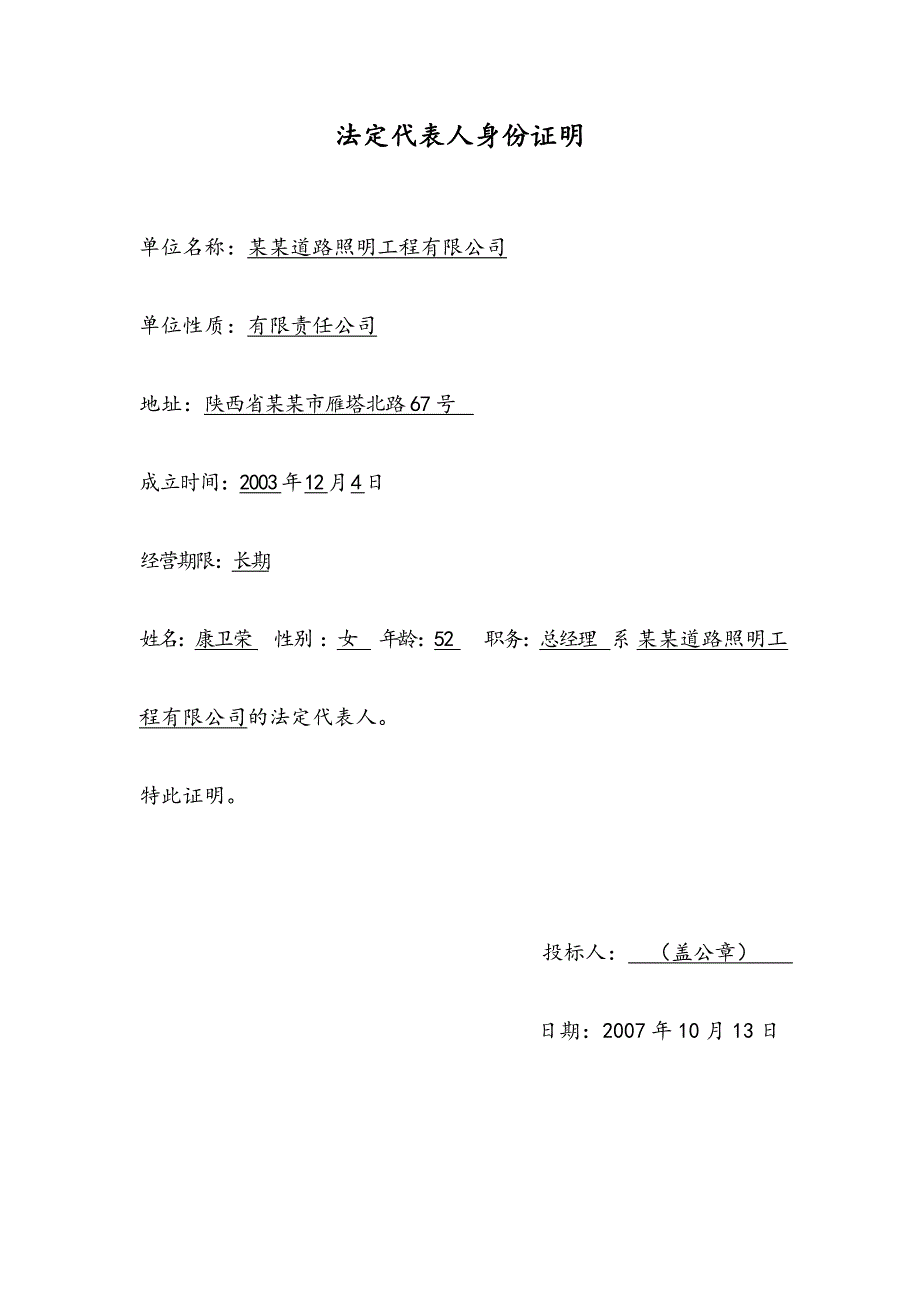 法定代表人身份证明
单位名称：某某道路照明工程有限公司
单位性质：有限责任公司
地址：陕西省某某市雁塔北路67号
成立时间：2003年12月4日
经营期限：长期
姓名：康卫荣 性别：女 年龄：52 职务：总经理 系 某某道路照明工
程有限公司的法定代表人。
特此证明。
投标人： （盖公章）
日期：2007年10月13日